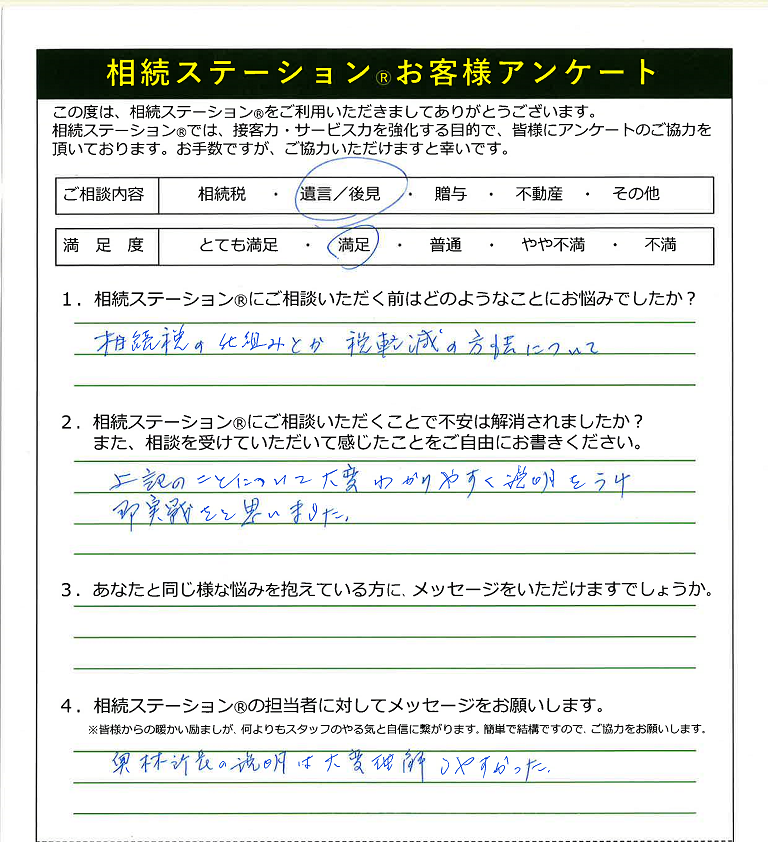 相続ステーション®お客様アンケート
この度は、相続ステーション®をご利用いただきましてありがとうございます。
相続ステーション®では、接客力・サービス力を強化する目的で、皆様にアンケートのご協力を
頂いております。お手数ですが、ご協力いただけますと幸いです。
ご相談内容 相続税 ・ 遺言／後見 ・ 贈与 ・ 不動産 ・ その他
満 足 度 とても満足 ・ 満足 ・ 普通 ・ やや不満 ・ 不満
1．相続ステーション®にご相談いただく前はどのようなことにお悩みでしたか？
相続税の仕組みとか 税軽減の方法について
2．相続ステーション®にご相談いただくことで不安は解消されましたか？
また、相談を受けていただいて感じたことをご自由にお書きください。
上記のことについて大変わかりやすく説明をうけ
即実戦をと思いました。
3．あなたと同じ様な悩みを抱えている方に、メッセージをいただけますでしょうか。
4．相続ステーション®の担当者に対してメッセージをお願いします。
※皆様からの暖かい励ましが、何よりもスタッフのやる気と自信に繋がります。簡単で結構ですので、ご協力をお願いします。
の説明は大変理解しやすかった。